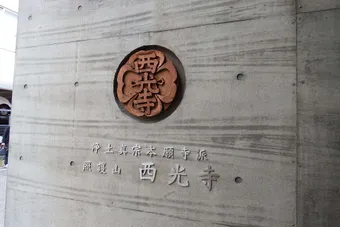 西光寺
浄土真宗本願寺派
照護山 西光寺